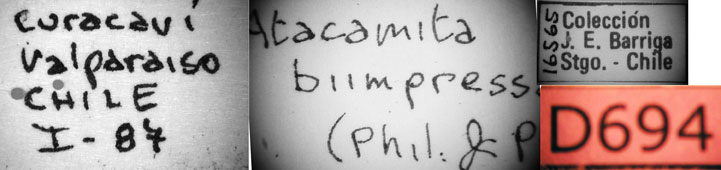 curacaví
valparaiso
CHILE
I-87
Atacamita
biimpress
(Phil. & P
16565
Colección
J. E. Barriga
Stgo. - Chile
D694